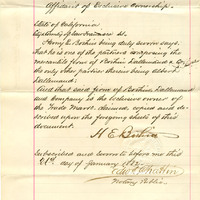 Affidavit of Exclusive Ownership.
State of California
City & County of San Francisco ss.
Henry E. Bothin being duly sworn says,
That he is one of the partners composing the
mercantile firm of Bothin, Dallemand & Co.
the only other parties therein being Albert
Dallemand.
And that said firm of Bothin, Dallemand
and Company is the exclusive owner of
the Trade Mark, claimed, copied and de-
scribed upon the foregoing sheets of this
document.
H. E. Bothin
Subscribed and sworn to before me this
21st day of January 188
Notary Public.